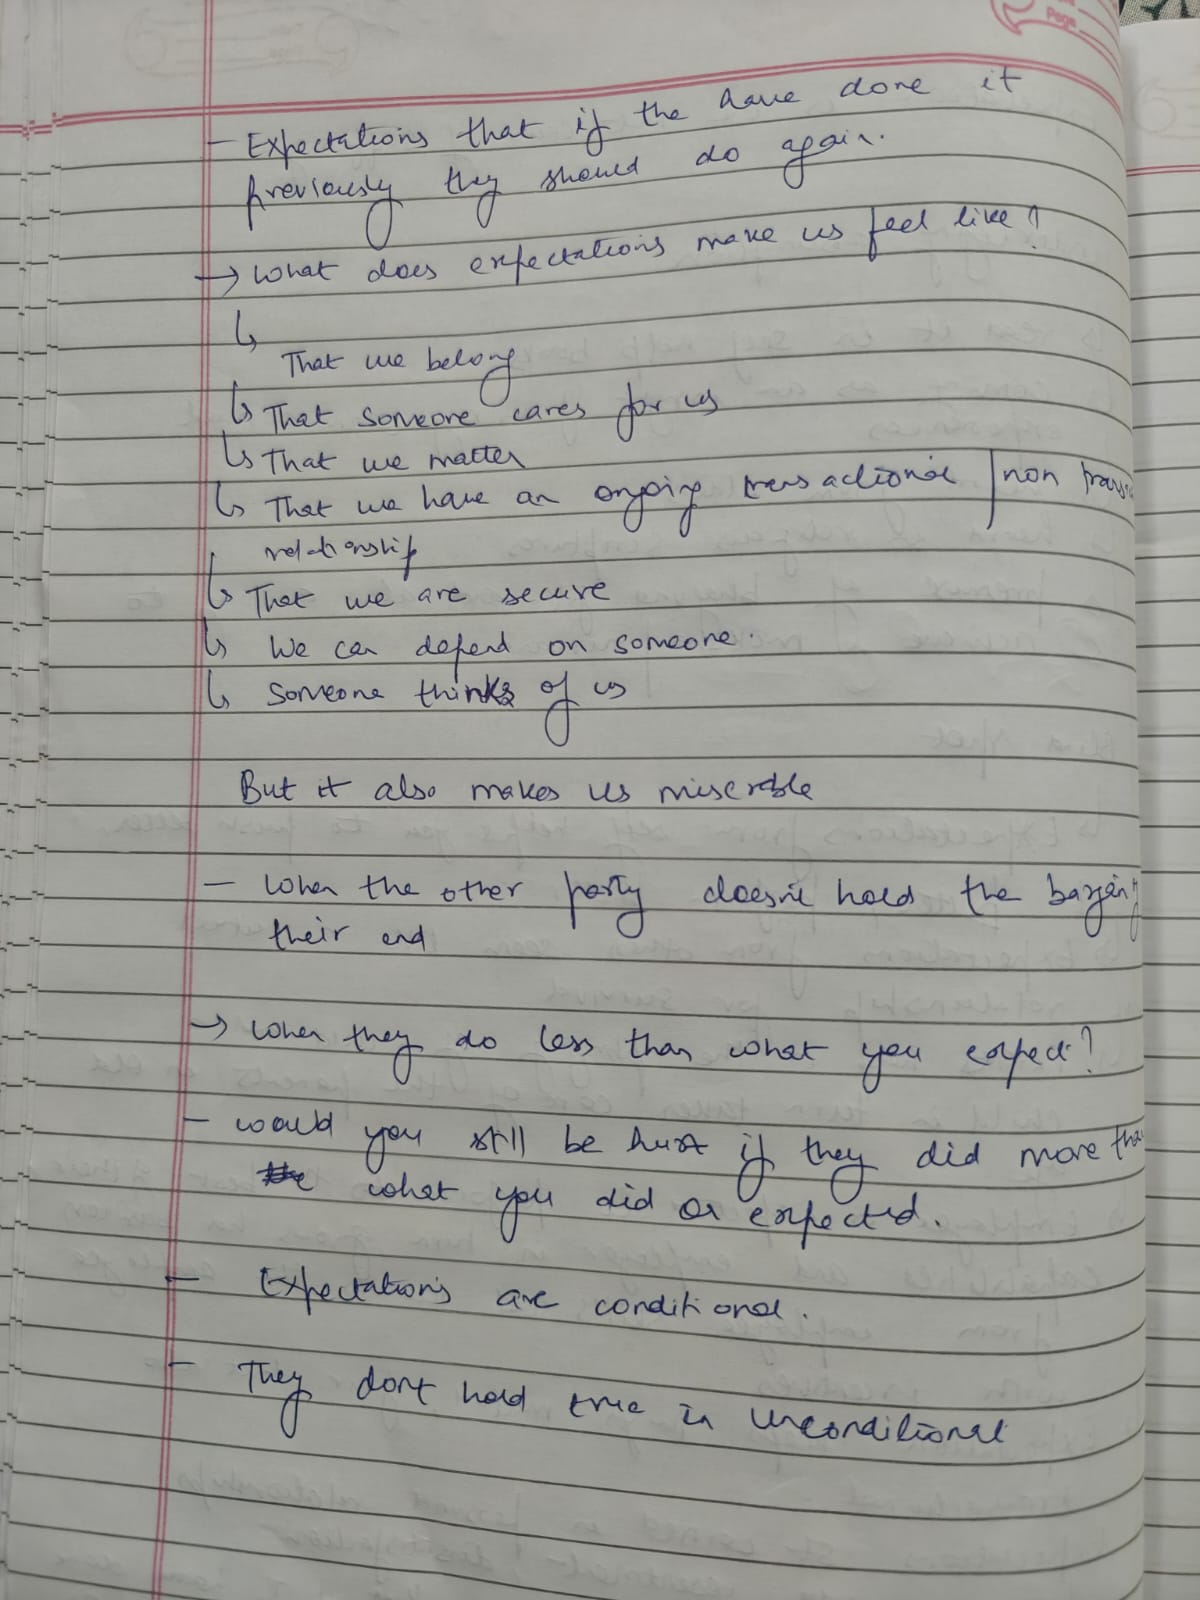 Page
- Expectations that if the have done it
previously they should do again.
→ What does expectations make us feel like?
↳
That we belong
↳ That someone cares for us
↳ That we matter
↳ That we have an ongoing transactional / non
relationship
↳ That we are secure
↳ We can depend on someone.
↳ Someone thinks of us
But it also makes us miserable
- When the other party doesn't hold the
their end
→ When they do less than what you expect?
- would you still be hurt if they did more
what you did or expected.
- Expectations are conditional.
- They dont hold true in unconditional